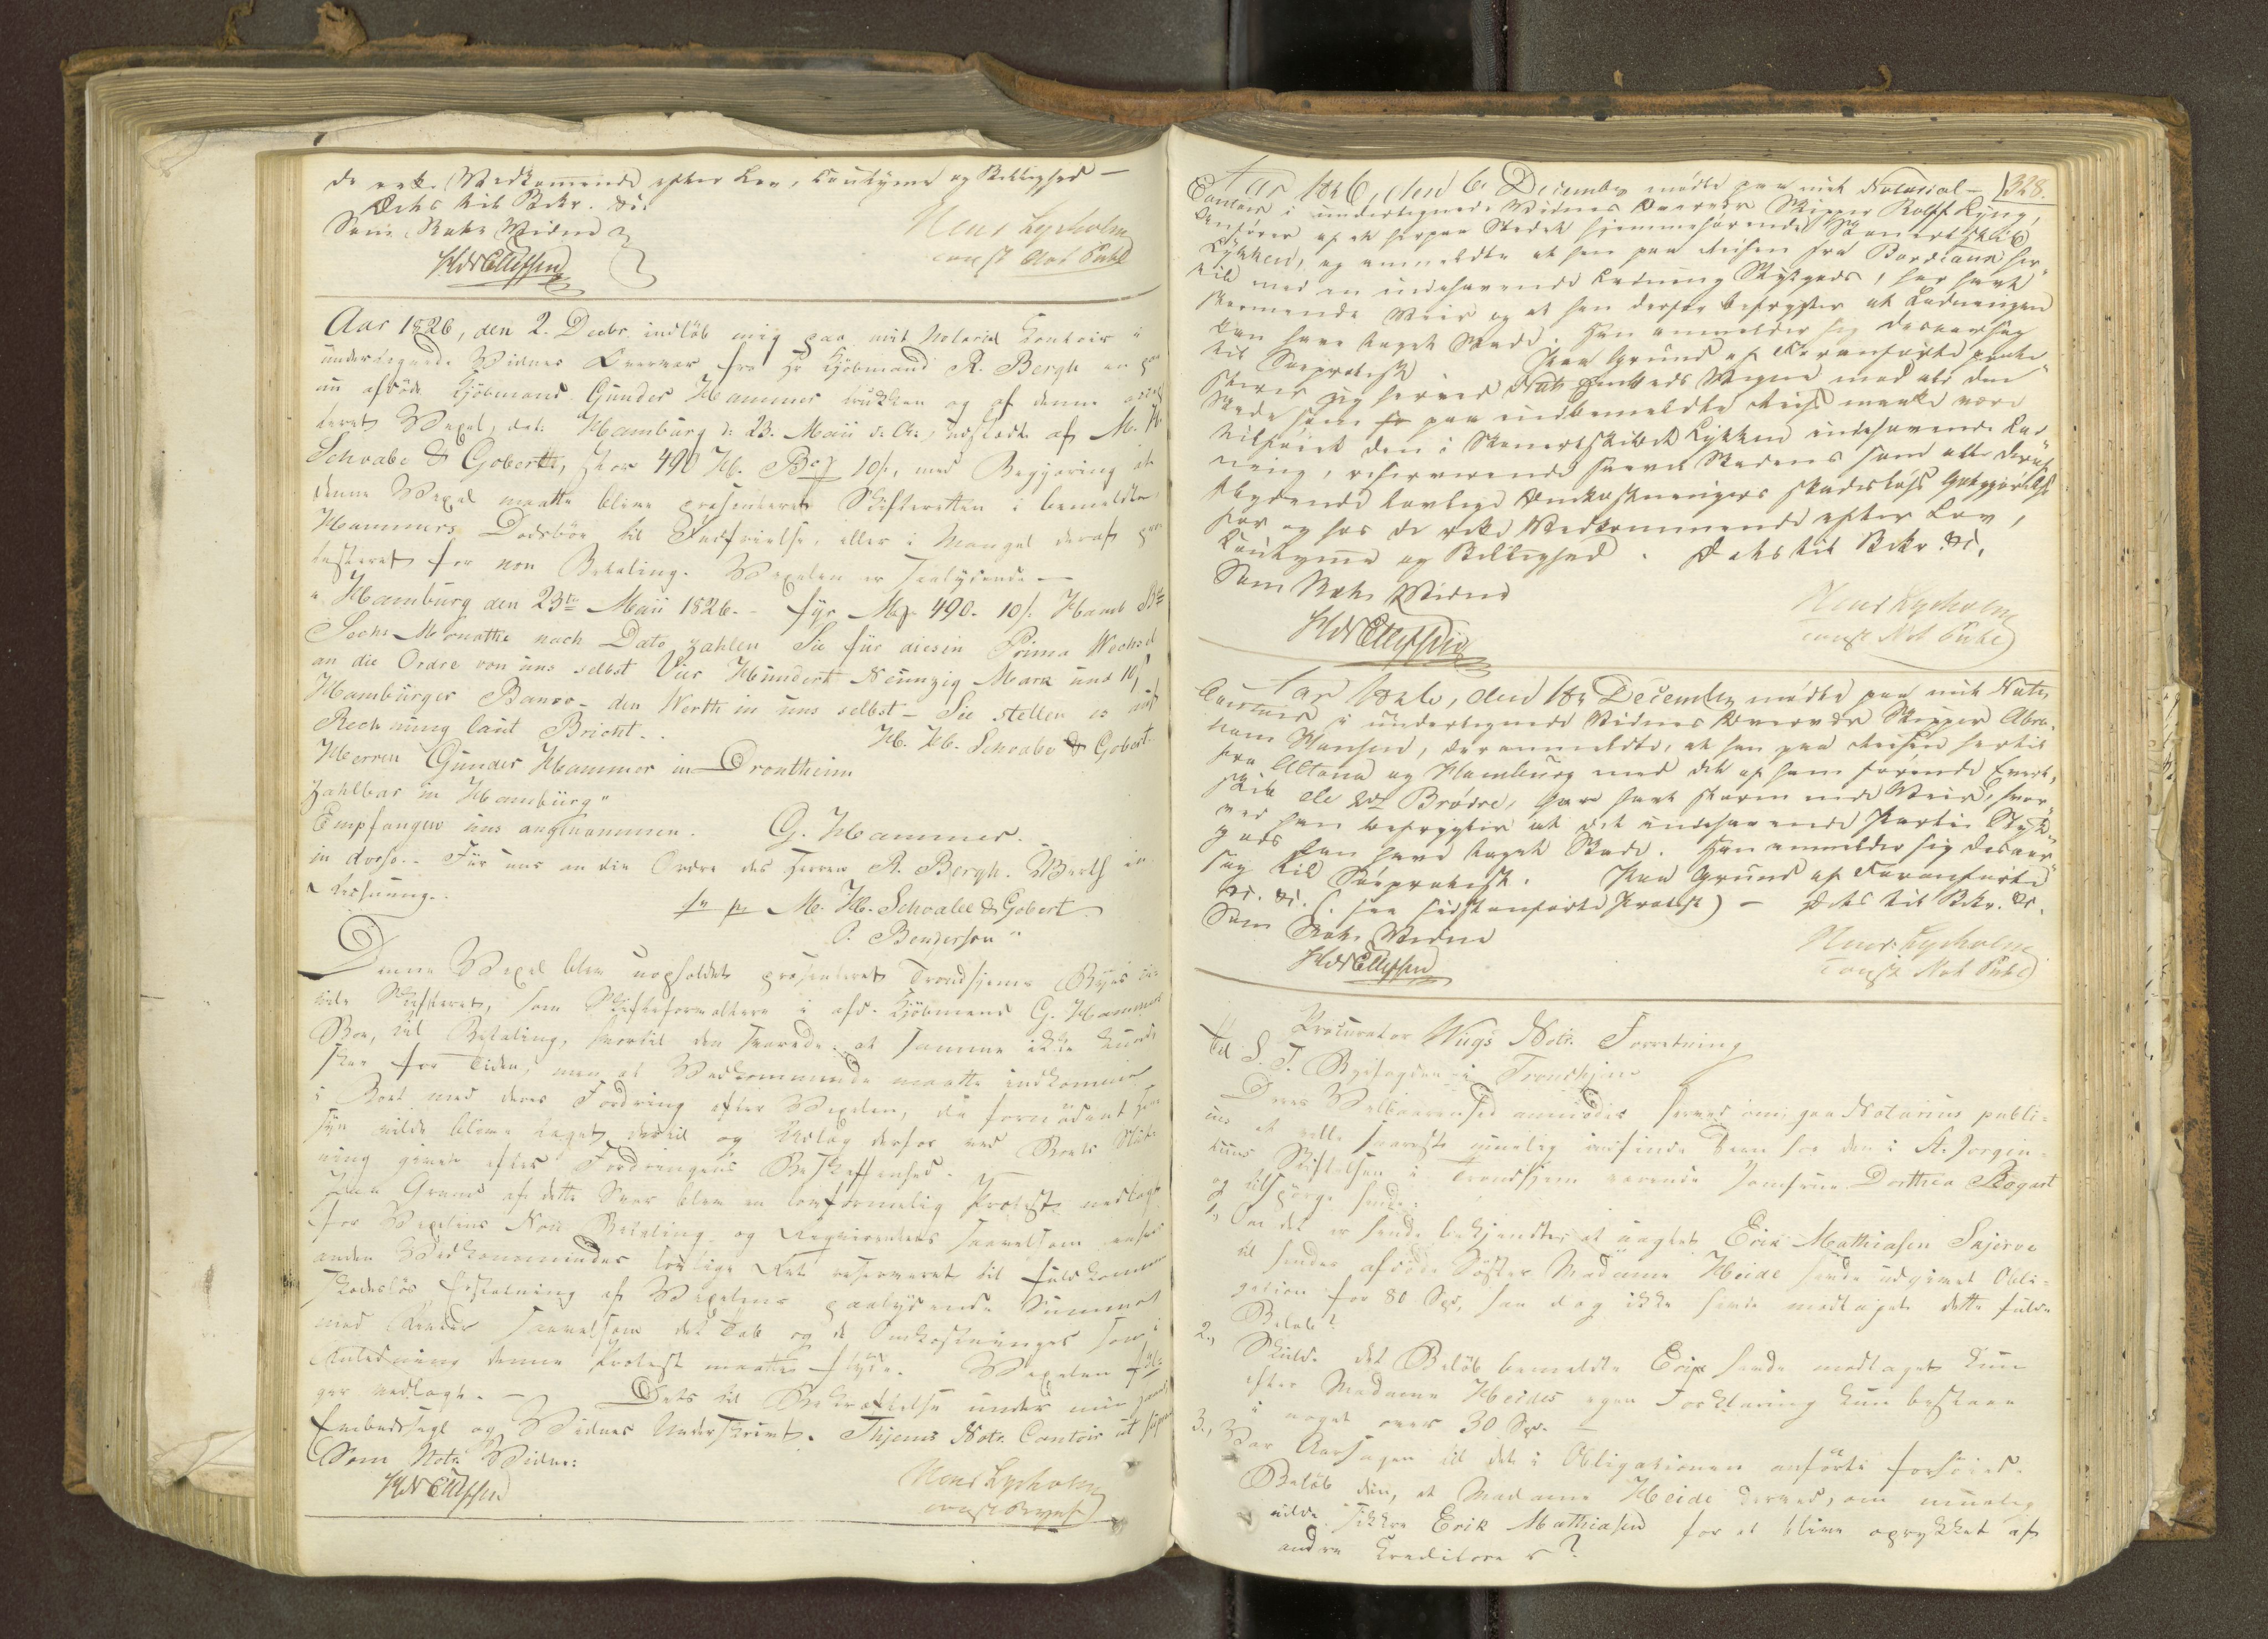 de rette Vedkommende efter Lov, Coutyme og Billighed –
Dets til Bekr. &c.
Som Nots. Vidne
H N Ellefsen
Hans Lysholm
const Not Publ
Aar 1826, den 2. Decbr. indløb mig paa mit Notarial Contoir i
undertegnede Vidnes Overvær fra Hr Kjøbmand R. Bergh en paa
nu afdøde Kjøbmand Gunder Hammer trukken og af denne accep
teret Vexel, dat: Hamburg d: 23. Maii d: A:, udstædt af M. H.
Schvabe & Gobertt, stor 490 H. Bco 10/, med Begjæring at
denne Vexel maatte blive præsenteret Skifteretten i bemeldte
Hammers Dødsboe til Indfrielse, eller i Mangel deraf pro
testeret for non Betaling. Vexelen er saalydende –
"Hamburg den 23te Maii 1826. – für Mk 490. 10/. Hamb Bco
Sechs Monathe nach Dato zahlen Sie für diesen Prima Wechsel
an die Ordre von uns selbst Vier Hundert Neunzig Mark und 10/
Hamburger Banco – den Werth in uns selbst – Sie stellen es auf
Rechnung laut Bricht. –
M. H. Schvabe & Gobert.
Herren Gunder Hammer in Drontheim
Zahlbar in Hamburg"
Empfangen uns angenommen. G. Hammer.
in dorso. – Für uns an die Ordre des Herren R. Bergh. Werth in
Rechnung.
pr pr M. H. Schvabe & Gobert
P. Bendersen"
Denne Vexel blev uopholdet præsenteret Trondhjems Byes
Skifteret, som Skifteforvaltere i afd. Kjøbmand G. Hammers
Boe, til Betaling, hvortil den svarede: at samme ikke kunde
skee for Tiden, men at Vedkommende maatte indkomme
i Boet med deres Fordring efter Vexelen, da fornødent Hen
syn vilde blive taget dertil og Udlæg derfor ved Boets Slut
ning given efter Fordringens Beskaffenhed. –
Paa Grund af dette Svar blev en lovformelig Protest nedlagt
for Vexelens Non Betaling og Reqvirentens saavelsom enhver
anden Vedkommendes lovlige Ret reserveret til fuldkommen
skadesløs Erstatning af Vexelens paalydende Summa
med Renter saavelsom det Tab og de Omkostninger som i
Anledning denne Protest maatte flyde. Vexelen føl
ger vedlagt. – Dets til Bekræftelse under min Haand
Embedssegl og Vidnes Underskrivt. Thjems Nots. Contoir ut supra
Som Nots. Vidne:
H N Ellefsen
Hans Lysholm
const Byef
328.
Aar 1826, den 6. December mødte paa mit Notarial –
Contoir i undertegnede Vidnes Overvær Skipper Rolff Lyng,
Anfører af det herpaa Stedet hjemmehørende Skonnertskib
Lykken, og anmeldte at han paa Reisen fra Bordeaux her
til med en indehavende Ladning Stykgods, har havt
stormende Veir og at han derfor befrygter at Ladningen
kan have taget Skade. Han anmelder sig desaarsag
til Søeprotest. Paa Grund af Foranførte prote
sterer jeg herved Nots Embeds Vegne mod al den
Skade som paa indbemeldte Reise maatte være
tilføiet den i Skonnertskibet Lykken indehavende Lad
ning, reserverende saavel Skadens som alle deraf
flydende lovlige Omkostningers skadesløse Godtgjørelse
for og hos de rette Vedkommende efter Lov,
Coutyme og Billighed. Dets til Bekr. &c.
Som Nots. Vidne
H N Ellefsen
Hans Lysholm
const Not Publ
Aar 1826, den 18de December mødte paa mit Nots.
Contoir i undertegnede Vidnes Overvær Skipper Abra
ham Hansen, der anmeldte, at han paa Reisen hertil
fra Altona og Hamburg med det af ham førende Evert,
skib De 2de Brødre, har havt stormende Veir, hvor
ved han befrygter at det indehavende Partie Styk
gods kan have taget Skade. Han anmelder sig desaar
sag til Søeprotest. Paa Grund af Foranførte
&c. &c. (see sidstanførte Protest) – Dets til Bekr. &c.
Som Nots. Vidne
H N Ellefsen
Hans Lysholm
const Not Publ
Procurator Wiigs Nots. Forretning
Til S. T. Byefogden i Trondhjem
Deres Velbaarenhed anmodes herved som Notarius publi-
cus at ville snareste muelig indfinde Dem hos den i St. Jørgen-
huus Stiftelsen i Trondhjem værende Jomfrue Dorthea Bogart
og tilspørge hende:
1., Om det er hende bekjendt, at uagtet Erik Mathiasen Skjerve
til hendes afdøde Søster Madame Heide havde udgivet Obli-
gation for 80 Spd, han dog ikke havde modtaget dette fulde
Beløb?
2., Skulde det Beløb bemeldte Erik havde modtaget kun
efter Madame Heides egen Forklaring kun bestaae
i noget over 30 Spd. –
3., Var Aarsagen til det i Obligationen anførte forhøiede
Beløb den, at Madame Heide derved, om muelig
vilde sikkre Erik Mathiasen for at blive oprykket af
andre Creditorer?